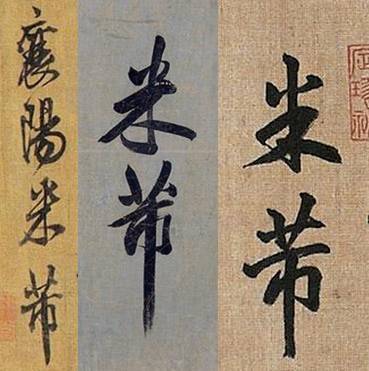 襄陽米芾
米芾
米芾